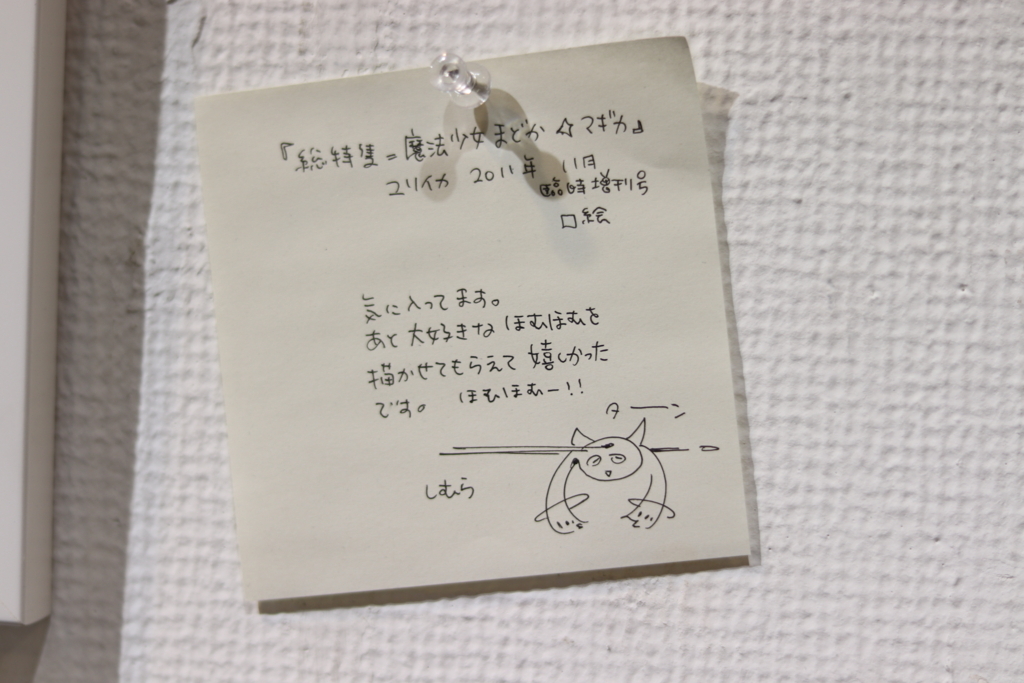 『総特集=魔法少女まどか☆マギカ』
ユリイカ 2011年 11月
臨時増刊号
口絵
気に入ってます。
あと大好きなほむほむを
描かせてもらえて嬉しかった
です。 ほむほむー!!
ターン
しむら